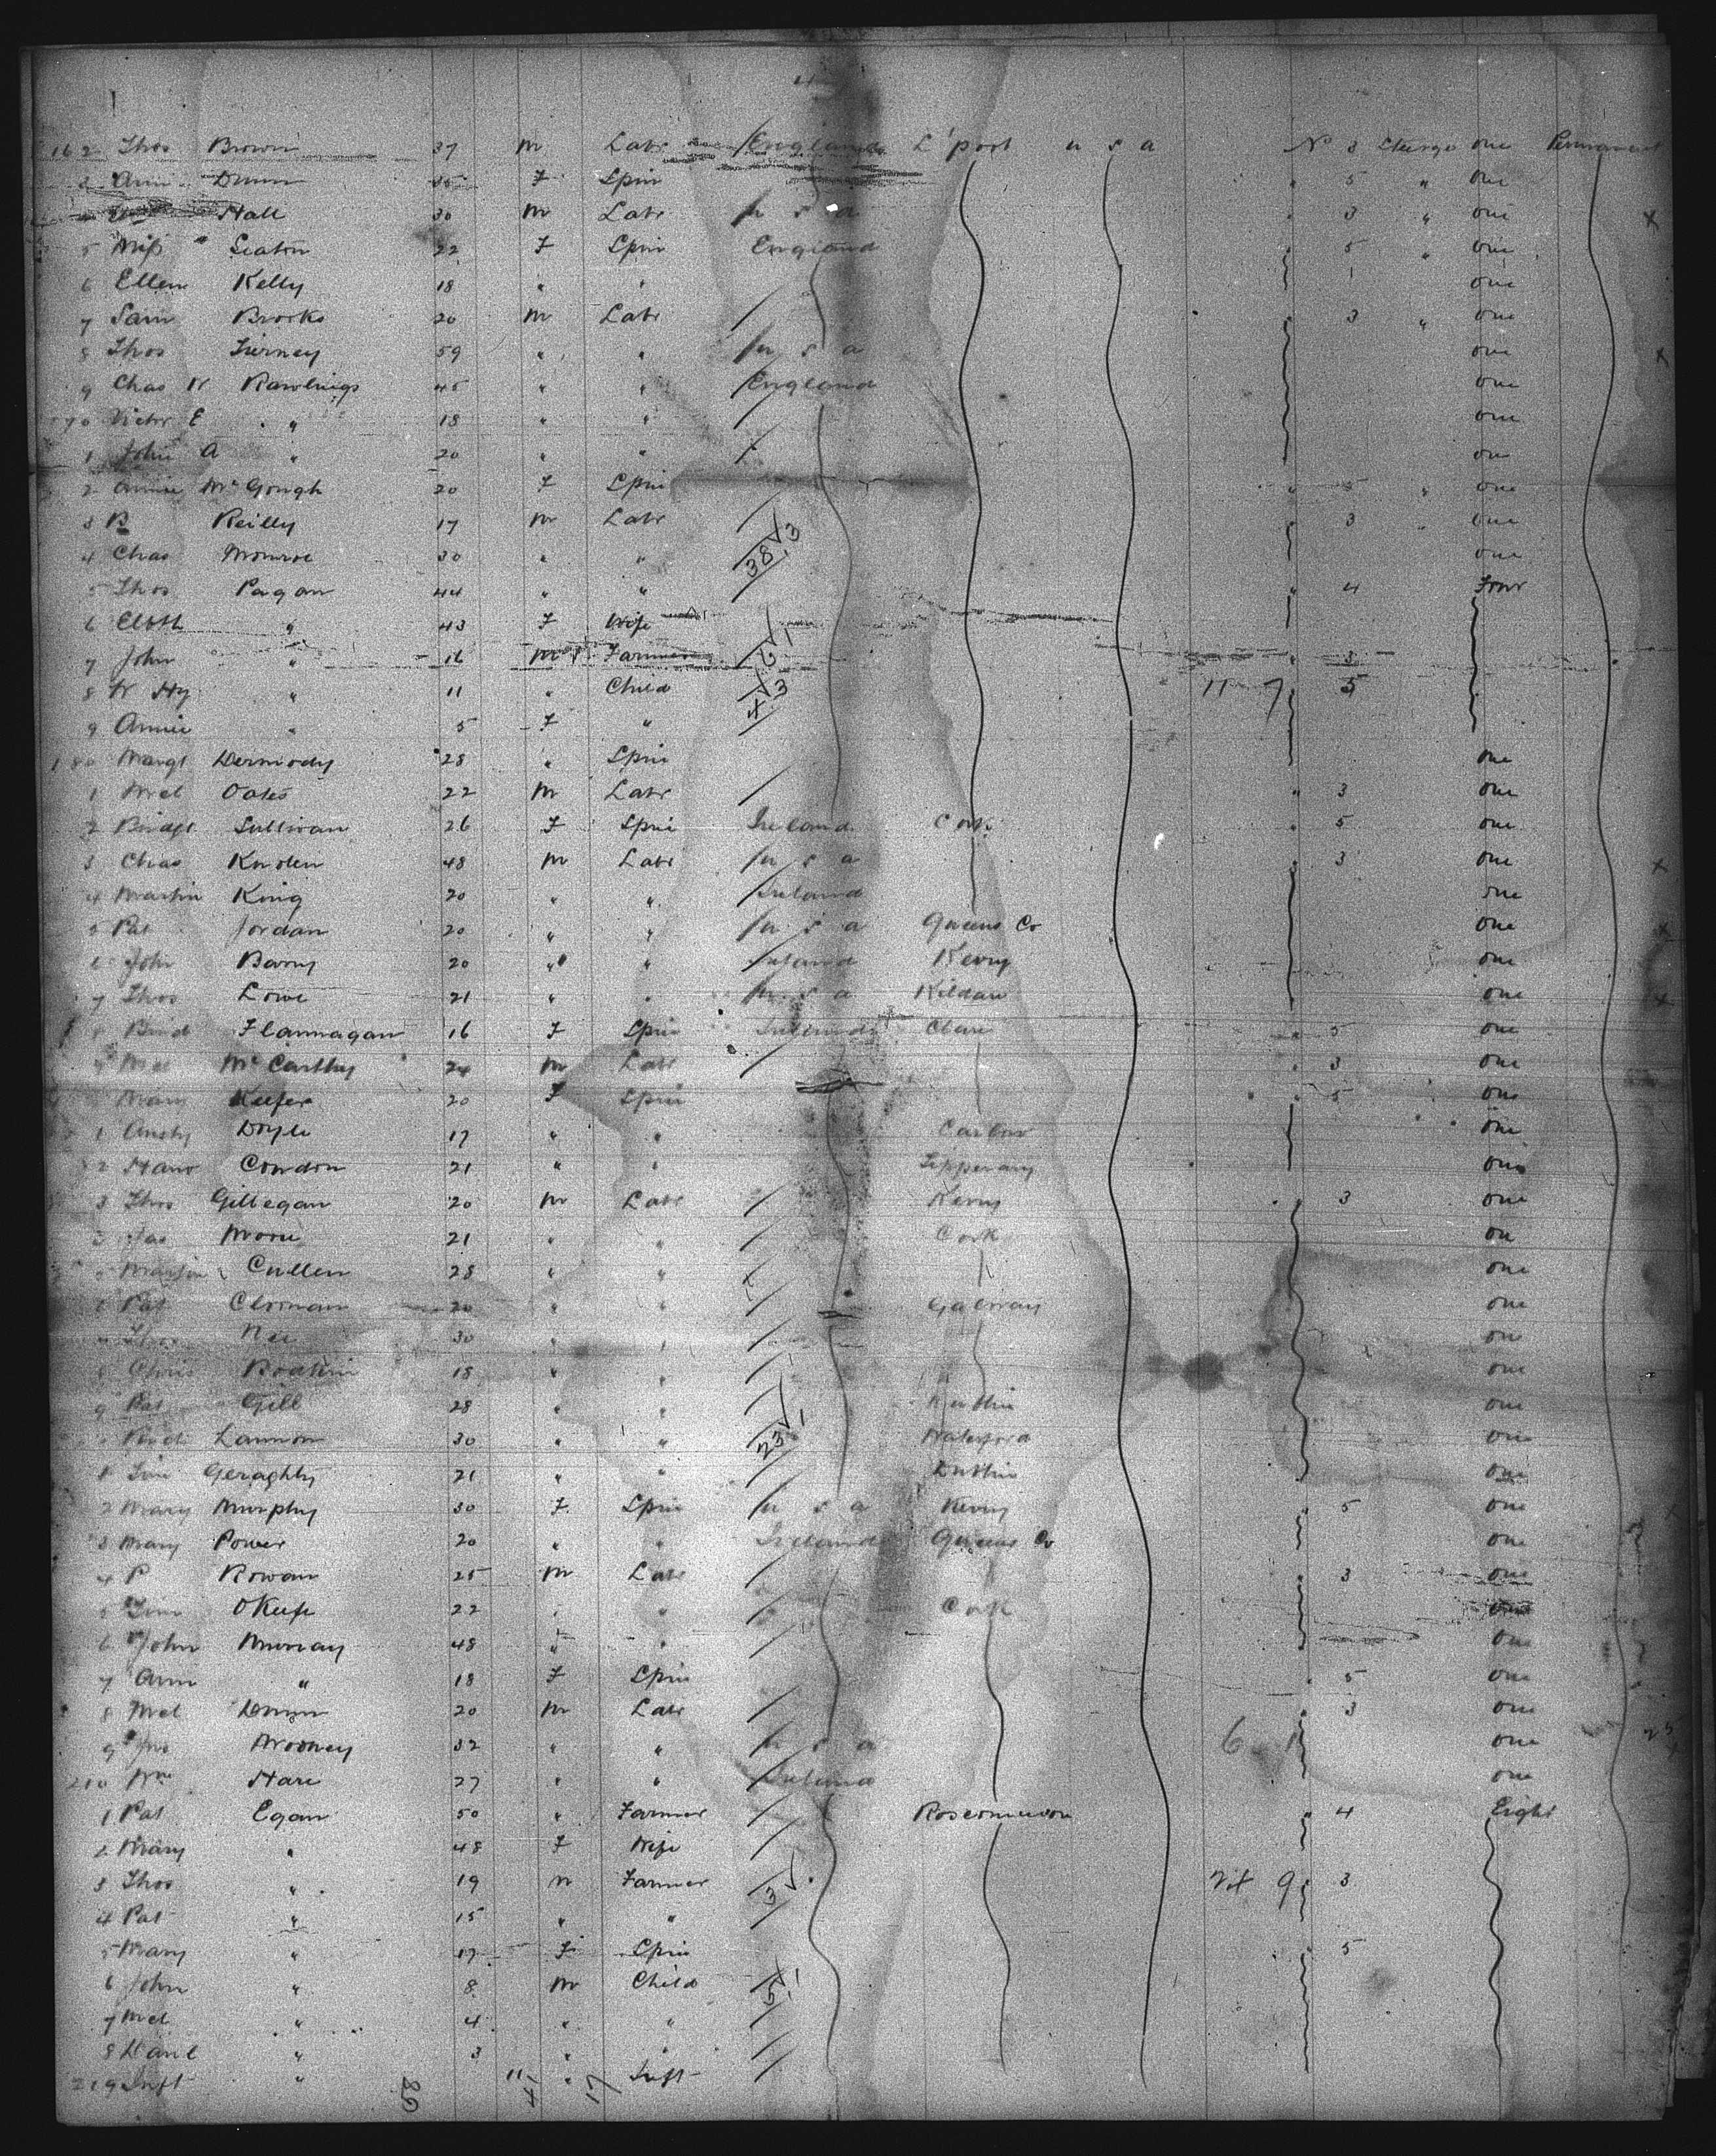 162 Thos Brown 37 m Labr England L'pool u s a No 3 Steerage one Permanent
3 Ann Dunn 35 F Spin " 5 " one
Hall 30 m Labr u s a " 3 " one x
5 Miss Seaton 22 F Spin England " 5 " one
6 Ellen Kelly 18 " " one
7 Sam Brooks 20 m Labr / 3 " one
8 Thos Tierney 59 " " u s a one x
9 Chas W Rawlings 45 " " England one
70 Victor E " 18 " " / one
1 John A " 20 " " / one
2 Annie McGough 20 F Spin " 5 " one
3 B Reilly 17 m Labr / " 3 " one
4 Chas Monroe 30 " " 38 3 one
5 Thos Fagan 44 " " / " 4 Four
6 Elbth " 43 F Wife
7 John " 16 m Farmer 6 1 " 3
8 W Hy " 11 " Child 4 3 11 7 5
9 Annie " 5 F "
180 Margt Dermody 28 " Spin one
1 Mcl Oates 22 m Labr / " 3 one
2 Bridgt Sullivan 26 F Spin Ireland Cork " 5 one
3 Chas Knolen 48 m Labr u s a " 3 one x
4 Martin King 20 " " Ireland one
5 Pat Jordan 20 " " u s a Queens Co one x
6 John Barry 20 " " Ireland Kerry one
7 Thos Lowe 21 " " u s a Kildare one x
8 Brid Flannagan 16 F Spin Ireland Clare " 5 one
9 Mcl McCarthy 24 m Labr / " 3 one
Mary Keefer 20 F Spin " 5 one
1 Ansty Doyle 17 " " Carlow one
2 Hano Condon 21 " " Tipperary one
3 Thos Gillegan 20 m Labr / Kerry " 3 one
Jas Moore 21 " " / Cork on
Martin Cullen 28 " " / one
Pat 20 " " / Galway one
Thos Nee 30 " " / one
8 Chris 18 " " / one
9 Pat Gill 28 " " / Dublin one
Lannon 30 " " 23 1 Waterford one
1 Tim Geraghty 21 " " / Dublin one
2 Mary Murphy 30 F Spin u s a Kerry " 5 one
3 Mary Power 20 " " Ireland Queens Co one
4 P Rowan 25 m Labr / " 3 one
5 Tim OKeefe 22 " " / Cork one
6 John Murray 48 " " / one
7 Ann " 18 F Spin " 5 one
8 Mcl Dunn 20 m Labr / " 3 one
9 Jno Mooney 32 " " u s a 6 1 one
210 Wm Hare 27 " " Ireland one
1 Pat Egan 50 " Farmer / Roscommon " 4 Eight
2 Mary " 48 F Wife /
3 Thos " 19 m Farmer / 9 3
4 Pat " 15 " " 3
5 Mary " 17 F Spin " 5
6 John " 8 m Child 5 1
7 Mcl " 4 " " /
8 Danl " 3 " " /
219 Inft " " Inft /